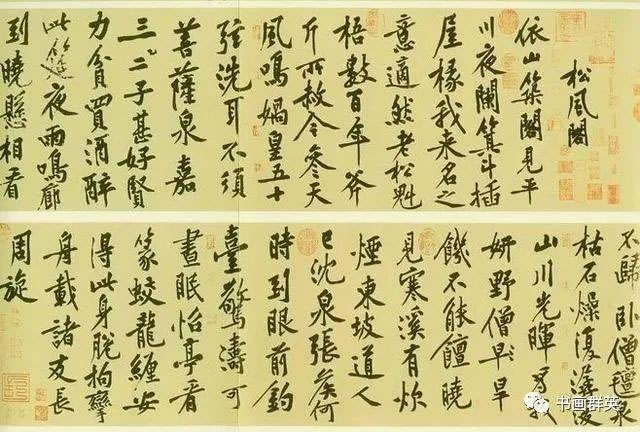 松風閣
依山築閣見平
川夜闌箕斗插
屋椽我來名之
意適然老松魁
梧數百年斧
斤所赦今參天
風鳴媧皇五十
弦洗耳不須
菩薩泉嘉
三二子甚好賢
力貧買酒醉
此筵夜雨鳴廊
到曉懸相看
不歸臥僧氈泉
枯石燥復潺湲
山川光暉為我
妍野僧早旱
饑不能饘曉
見寒溪有炊
煙東坡道人
已沈泉張侯何
時到眼前釣
臺驚濤可
晝眠怡亭看
篆蛟龍纏安
得此身脫拘攣
舟載諸友長
周旋
书画群英